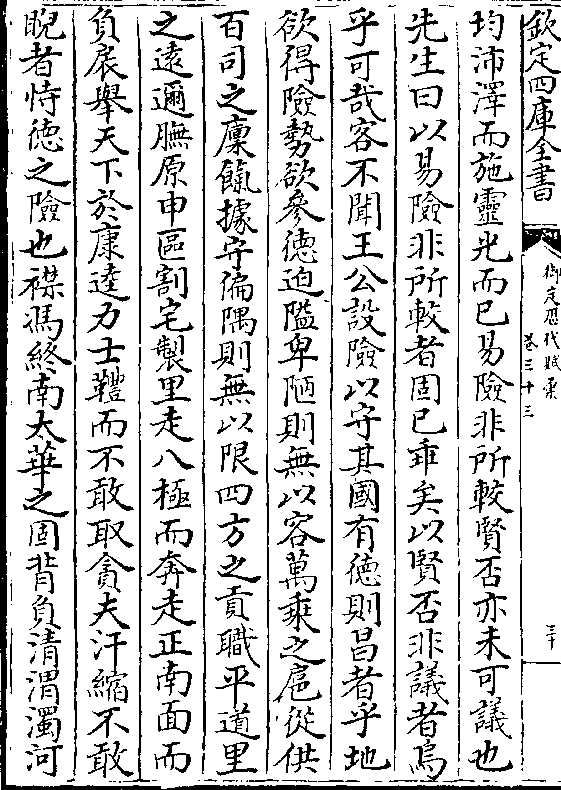 欽定四庫全書
御定歷代賦彙
卷三十三
三十
均沛澤而施靈光而已易險非所較賢否亦未可議也
先生曰以易險非所較者固已乖矣以賢否非議者烏
乎可哉客不聞王公設險以守其國有德則昌者乎地
欲得險勢欲參德迫隘卑陋則無以容萬乘之扈從供
百司之廩餼據守偏隅則無以限四方之貢職平道里
之遠邇膴原申區割宅製里走八極而奔走正南面而
負扆舉天下於康逵力士䪊而不敢取貪夫汗縮不敢
睨者恃德之險也襟馮終南太華之固背負清渭濁河